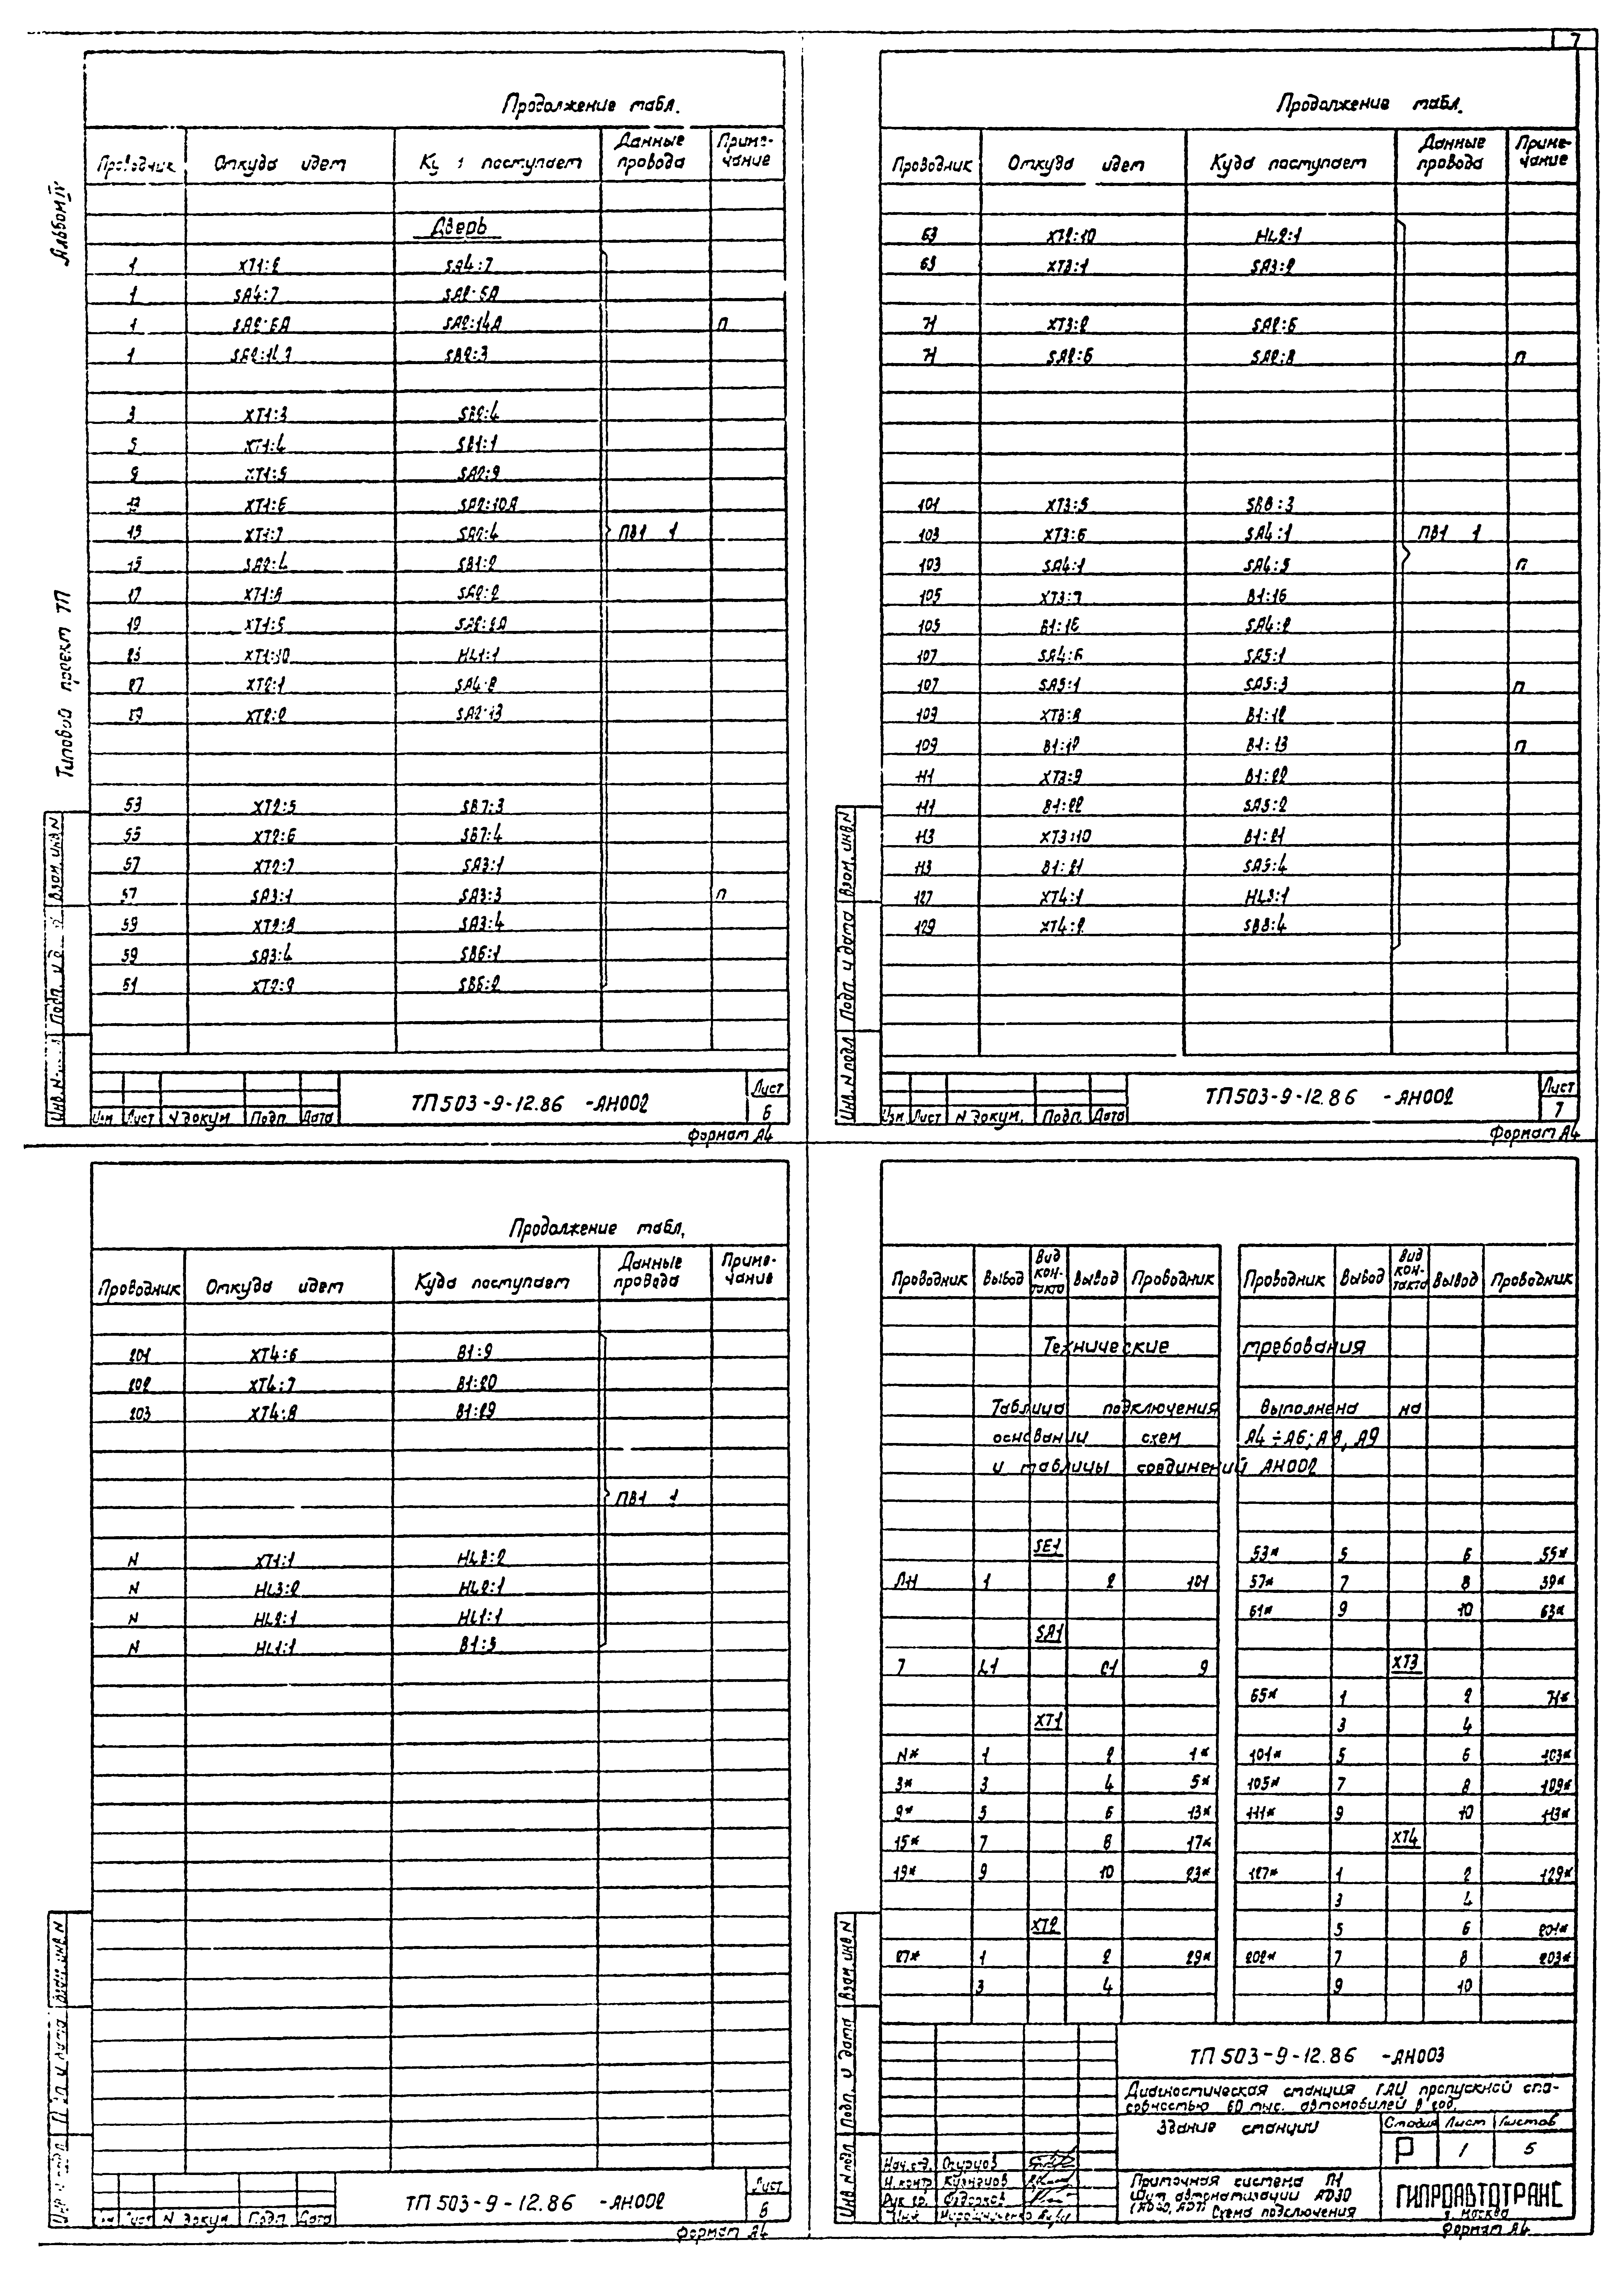 7
Альбом IV
Типовой проект ТП
Продолжение табл.
Проводник | Откуда идет | поступает | Данные провода | Примечание
Дверь
1 | XT1:2 | SA4:7
1 | SA4:7 | SA2:6A
1 | SA2:6A | SA2:14A | П
1 | SB2:3
3 | XT1:3 | SB2:4
5 | XT1:4 | SB1:1
9 | XT1:5 | SA2:9
13 | XT1:6 | SA2:10A
15 | XT1:7 | SA2:4 | ПВ1 1
15 | SA2:4 | SB1:2
17 | XT1:8 | SA2:2
19
XT1:10 | HL1:1
27 | XT2:1 | SA4:8
29 | XT2:2 | SA2:13
53 | XT2:5 | SB7:3
55 | XT2:6 | SB7:4
57 | XT2:7 | SA3:1
57 | SA3:1 | SA3:3 | П
59 | XT2:8 | SA3:4
59 | SA3:4 | SB6:1
61 | XT2:9 | SB6:2
Взам. инв. N
Изм Лист N докум. Подп. Дата
ТП 503-9-12.86 -АН002
Лист
6
Формат А4
Продолжение табл.
Проводник | Откуда идет | Куда поступает | Данные провода | Примечание
63 | XT2:10 | HL2:1
65 | XT3:1 | SA3:2
71 | XT3:2 | SA2:6
71 | SA2:6 | SA2:8 | П
101 | XT3:5 | SB8:3
103 | XT3:6 | SA4:1 | ПВ1 1
103 | SA4:1 | SA4:5 | П
105 | XT3:7 | B1:16
105 | B1:16 | SA4:2
107 | SA4:6 | SA5:1
107 | SA5:1 | SA5:3 | П
109 | XT3:8 | B1:12
109 | B1:12 | B1:13 | П
111 | XT3:9 | B1:22
111 | B1:22 | SA5:2
113 | XT3:10 | B1:21
113 | B1:21 | SA5:4
127 | XT4:1 | HL3:1
129 | XT4:2 | SB8:4
Инв. N подл. Подп. и дата Взам. инв. N
Изм Лист N докум. Подп. Дата
ТП 503-9-12.86 -АН002
Лист
7
Формат А4
Продолжение табл.
Проводник | Откуда идет | Куда поступает | Данные провода | Примечание
201 | XT4:6 | B1:9
202 | XT4:7 | B1:20
203 | XT4:8 | B1:29
ПВ1 1
N | XT1:1 | HL3:2
N | HL3:2 | HL2:1
N | HL2:1 | HL1:1
N | HL1:1 | B1:3
Лист N докум. Подп. Дата
ТП 503-9-12.86 -АН002
Лист
Формат А4
Проводник | Вывод | Вид контакта | Вывод | Проводник | Проводник | Вывод | Вид контакта | Вывод | Проводник
Технические требования
Таблица подключения выполнена на
основании схем А4÷А6; А8, А9
и таблицы соединений АН002
SE1 | 53* | 5 | 6 | 55*
ЛН | 1 | 2 | 101 | 57* | 7 | 8 | 59*
61* | 9 | 10 | 63*
SA1
7 | L1 | C1 | 9 | XT3
65* | 1 | 2 | 71*
XT1 | 3 | 4
N* | 1 | 2 | 1* | 101* | 5 | 6 | 103*
3* | 3 | 4 | 5* | 105* | 7 | 8 | 109*
9* | 5 | 6 | 13* | 111* | 9 | 10 | 113*
15* | 7 | 8 | 17* | XT4
19* | 9 | 10 | 23* | 127* | 1 | 2 | 129*
3 | 4
XT2 | 5 | 6 | 201*
27* | 1 | 2 | 29* | 202* | 7 | 8 | 203*
3 | 4 | 9 | 10
Инв. N подл. Подп. и дата Взам. инв. N
ТП 503-9-12.86 -АН003
Диагностическая станция ГАИ пропускной спо-
собностью 60 тыс. автомобилей в год.
Здание станции
Стадия Лист Листов
Р 1 5
Нач. отд.
Н. контр. Кузнецов
Рук. гр.
Приточная система П1
Щит автоматизации
Схема подключения
ГИПРОАВТОТРАНС
г. Москва
Формат А4